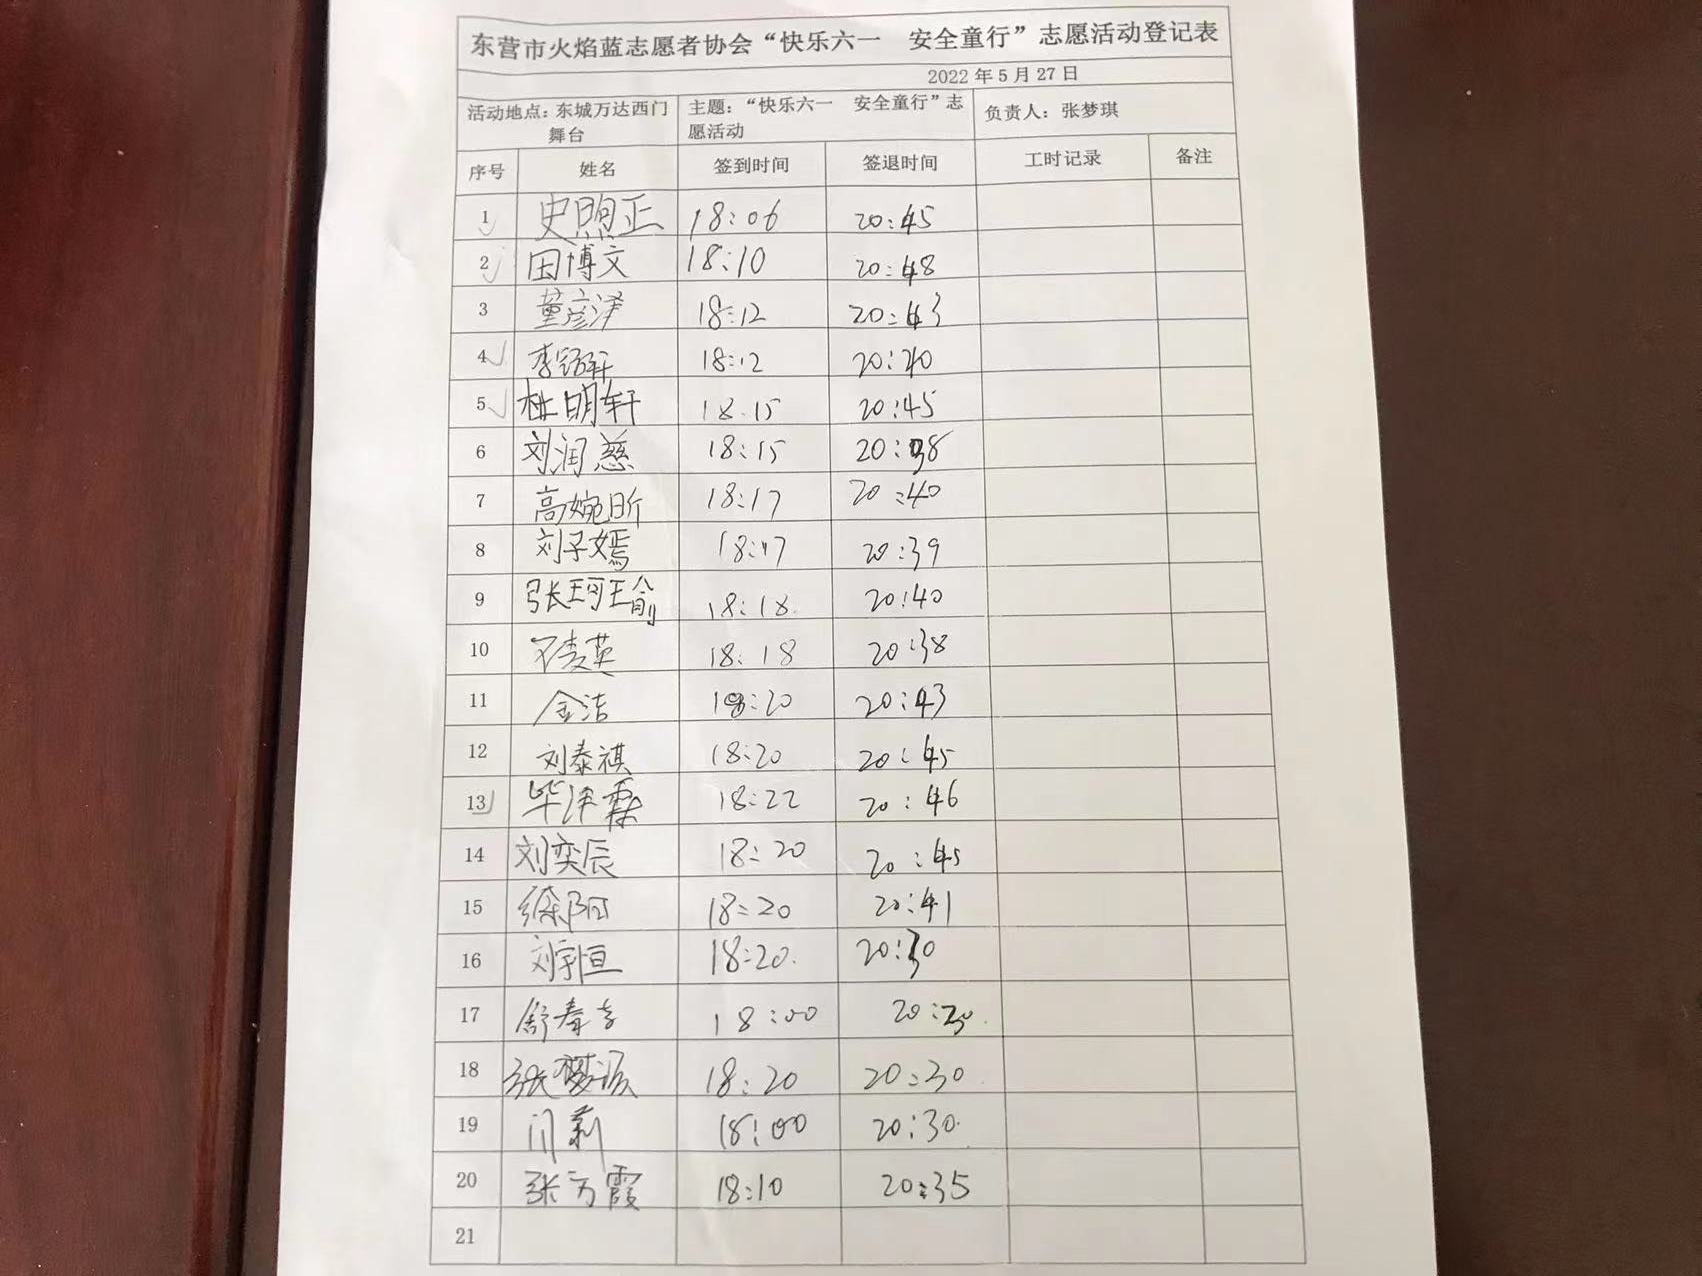 东营市火焰蓝志愿者协会“快乐六一 安全童行”志愿活动登记表
2022 年 5 月 27 日
活动地点：东城万达西门舞台 主题：“快乐六一 安全童行”志愿活动 负责人：张梦琪
序号 姓名 签到时间 签退时间 工时记录 备注
1 史煦正 18:06 20:45
2 田博文 18:10 20:48
3 董彦泽 18:12 20:43
4 李 轩 18:12 20:40
5 杜明轩 18.15 20:45
6 刘润慈 18:15 20:38
7 高婉昕 18:17 20:40
8 刘子嫣 18:17 20:39
9 张珂瑜 18:18. 20:40
10 英 18:18 20:38
11 金洁 18:20 20:43
12 刘泰祺 18:20 20:45
13 毕泽霖 18:22 20:46
14 刘奕辰 18:20 20:45
15 徐阳 18:20 20:41
16 刘宇恒 18:20. 20:30
17 舒春 18:00 20:30.
18 张 源 18:20 20:30
19 闫莉 18:00 20:30.
20 张方霞 18:10 20:35
21